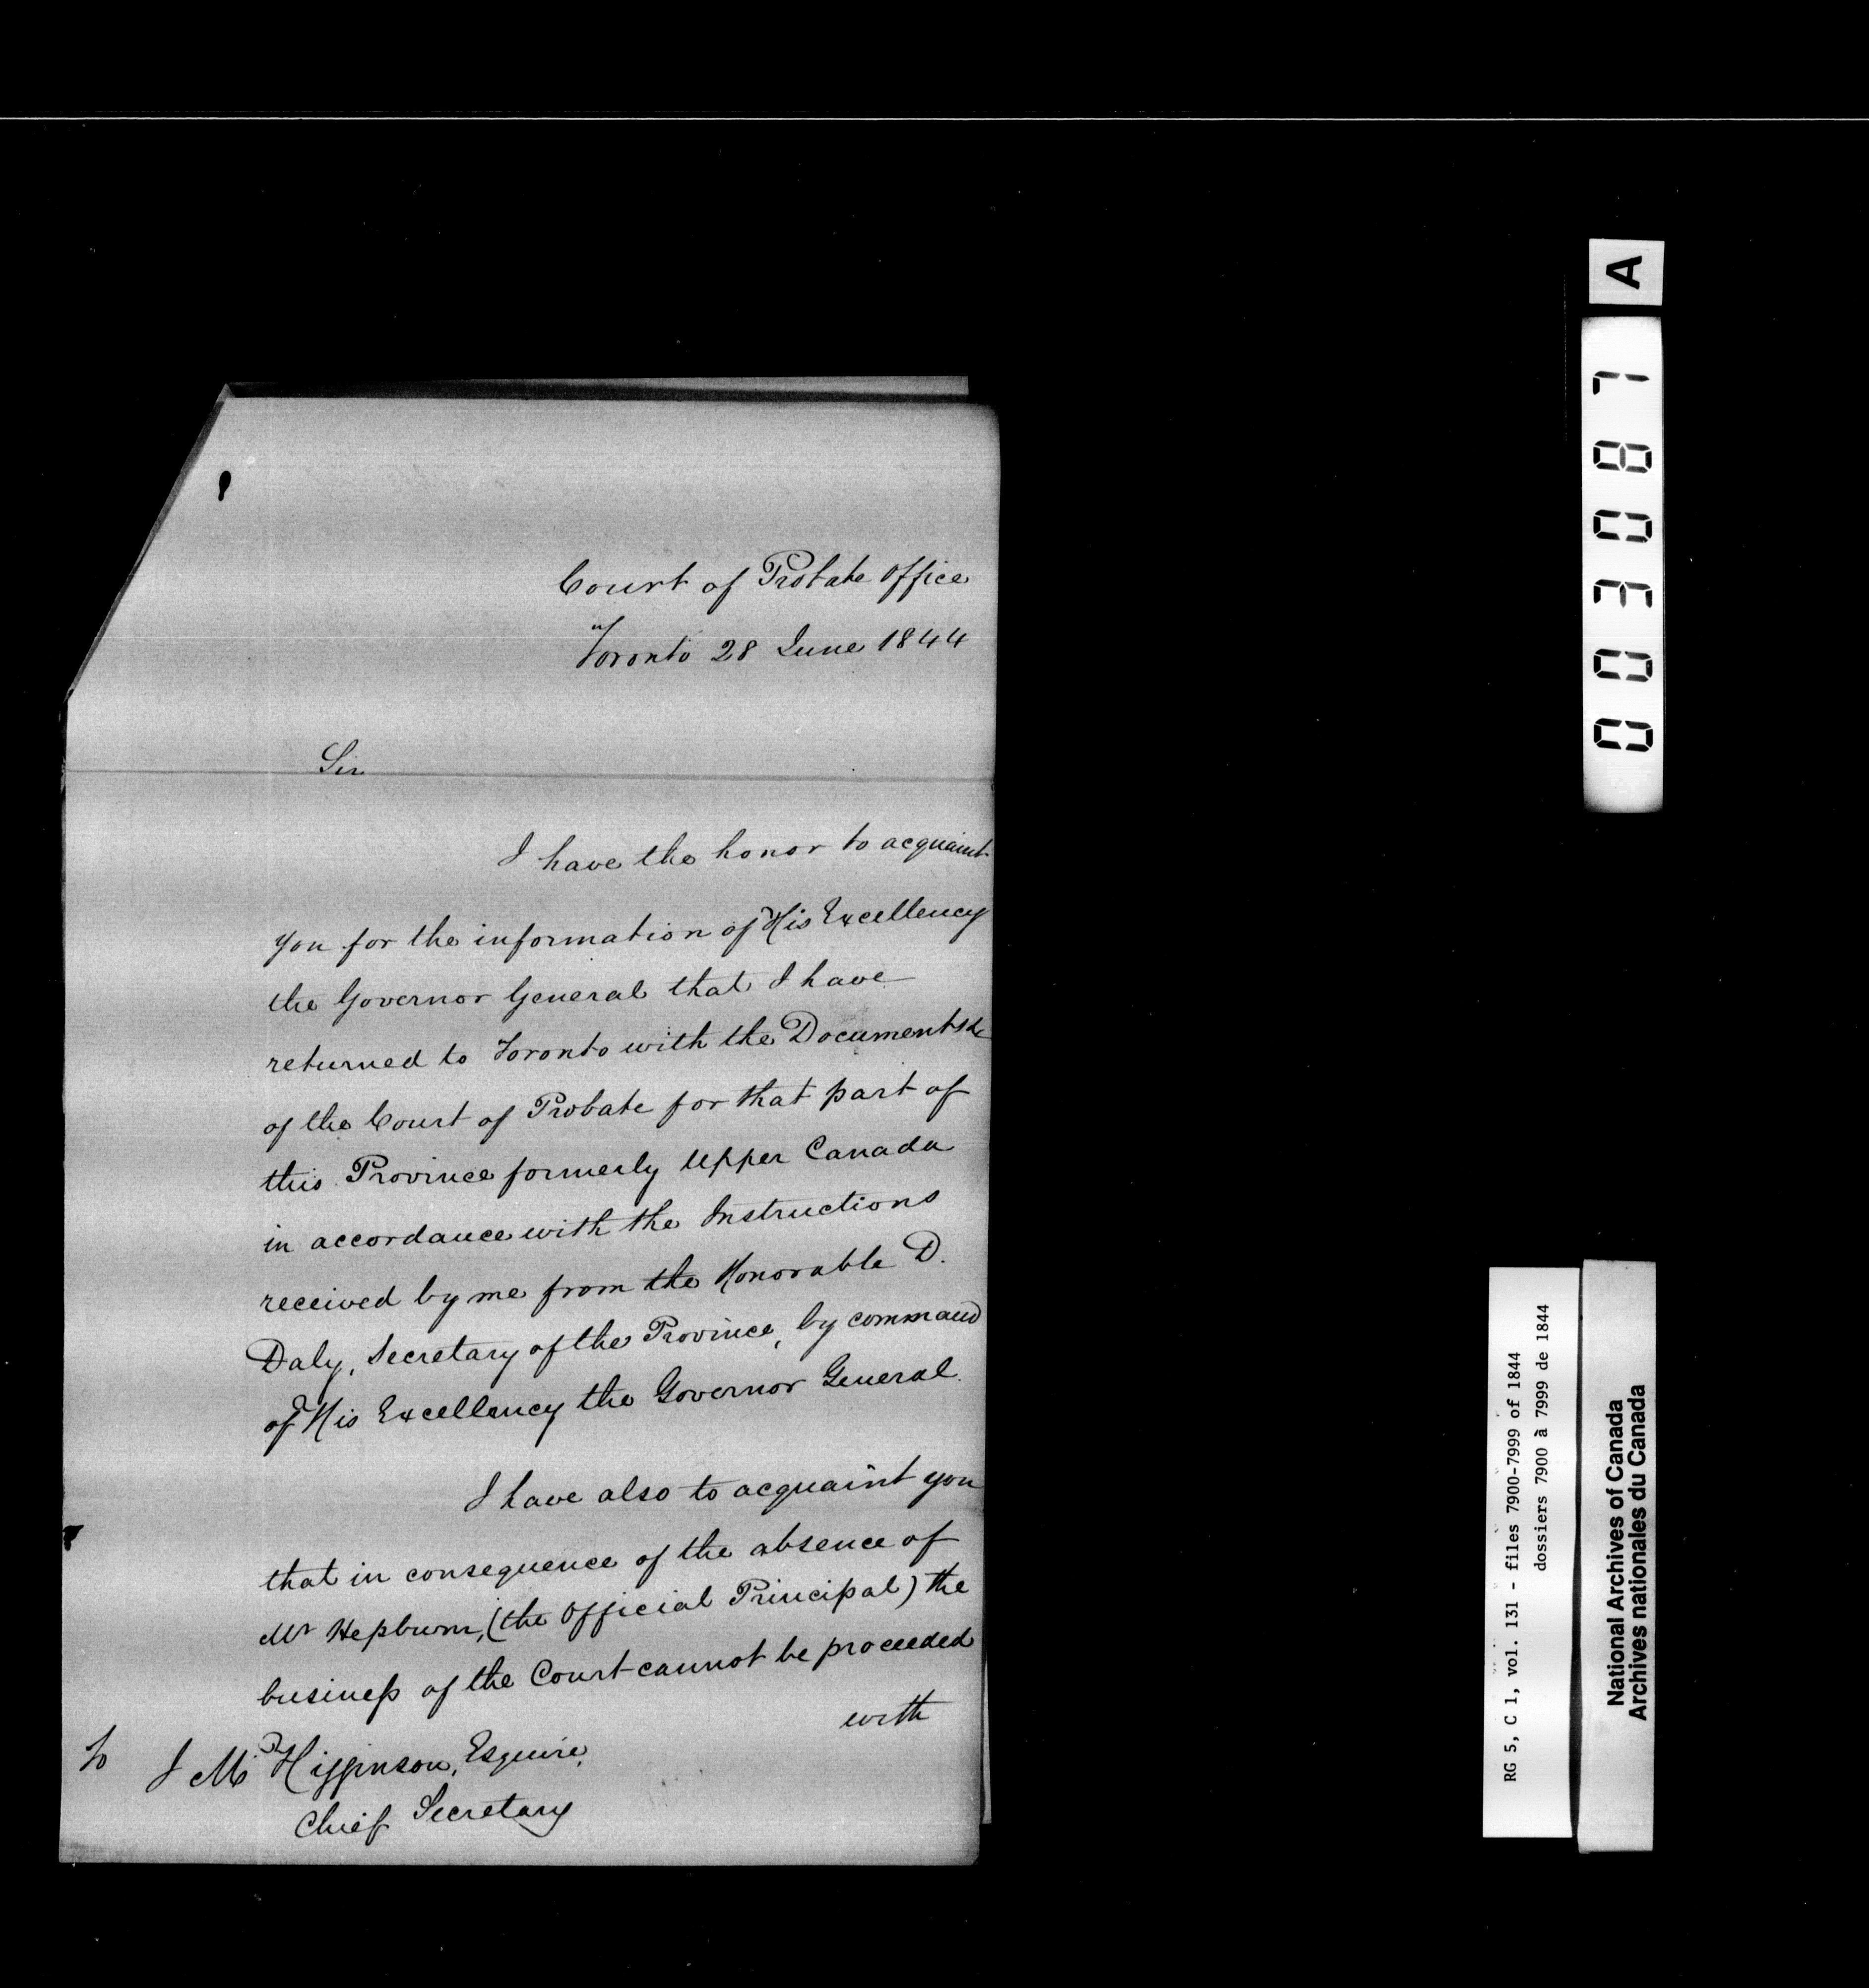 Court of Probate Office
Toronto 28 June 1844
Sir
I have the honor to acquaint
you for the information of His Excellency
the Governor General that I have
returned to Toronto with the Documents &c
of the Court of Probate for that part of
this Province formerly Upper Canada
in accordance with the Instructions
received by me from the Honorable D.
Daly, Secretary of the Province, by command
of His Excellency the Governor General.
I have also to acquaint you
that in consequence of the absence of
Mr Hepburn, (the Official Principal) the
business of the Court cannot be proceeded
with
To J M Higginson, Esquire,
Chief Secretary
A
003087
RG 5, C 1, vol. 131 - files 7900-7999 of 1844
dossiers 7900 à 7999 de 1844
National Archives of Canada
Archives nationales du Canada